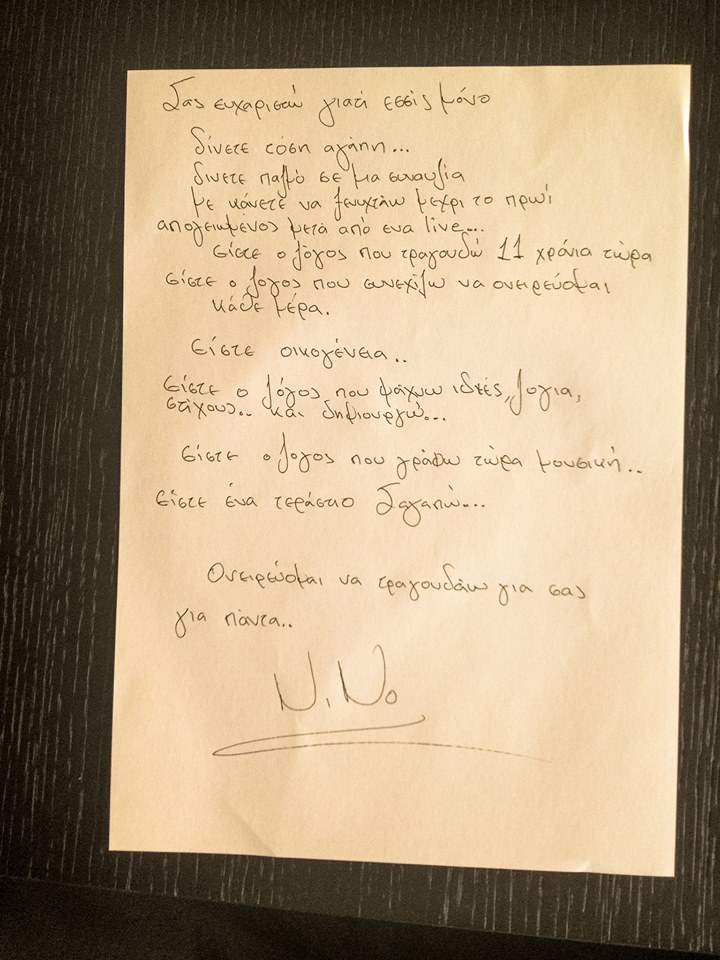 Σας ευχαριστώ γιατί εσείς μόνο
δίνετε τόση αγάπη...
δινετε παλμό σε μια συναυλία
με κάνετε να ξενυχτάω μεχρι το πρωί
απογειωμένος μετά από ενα live...
είστε ο λόγος που τραγουδώ 11 χρόνια τώρα
είστε ο λογος που συνεχίζω να ονειρεύομαι
κάθε μέρα.
Είστε οικογένεια..
είστε ο λόγος που ψάχνω ιδέες, λογια,
στίχους.. και δημιουργώ...
είστε ο λογος που γράφω τώρα μουσική..
είστε ένα τεράστιο Σαγαπώ...
Ονειρεύομαι να τραγουδάω για σας
για πάντα..
N.No